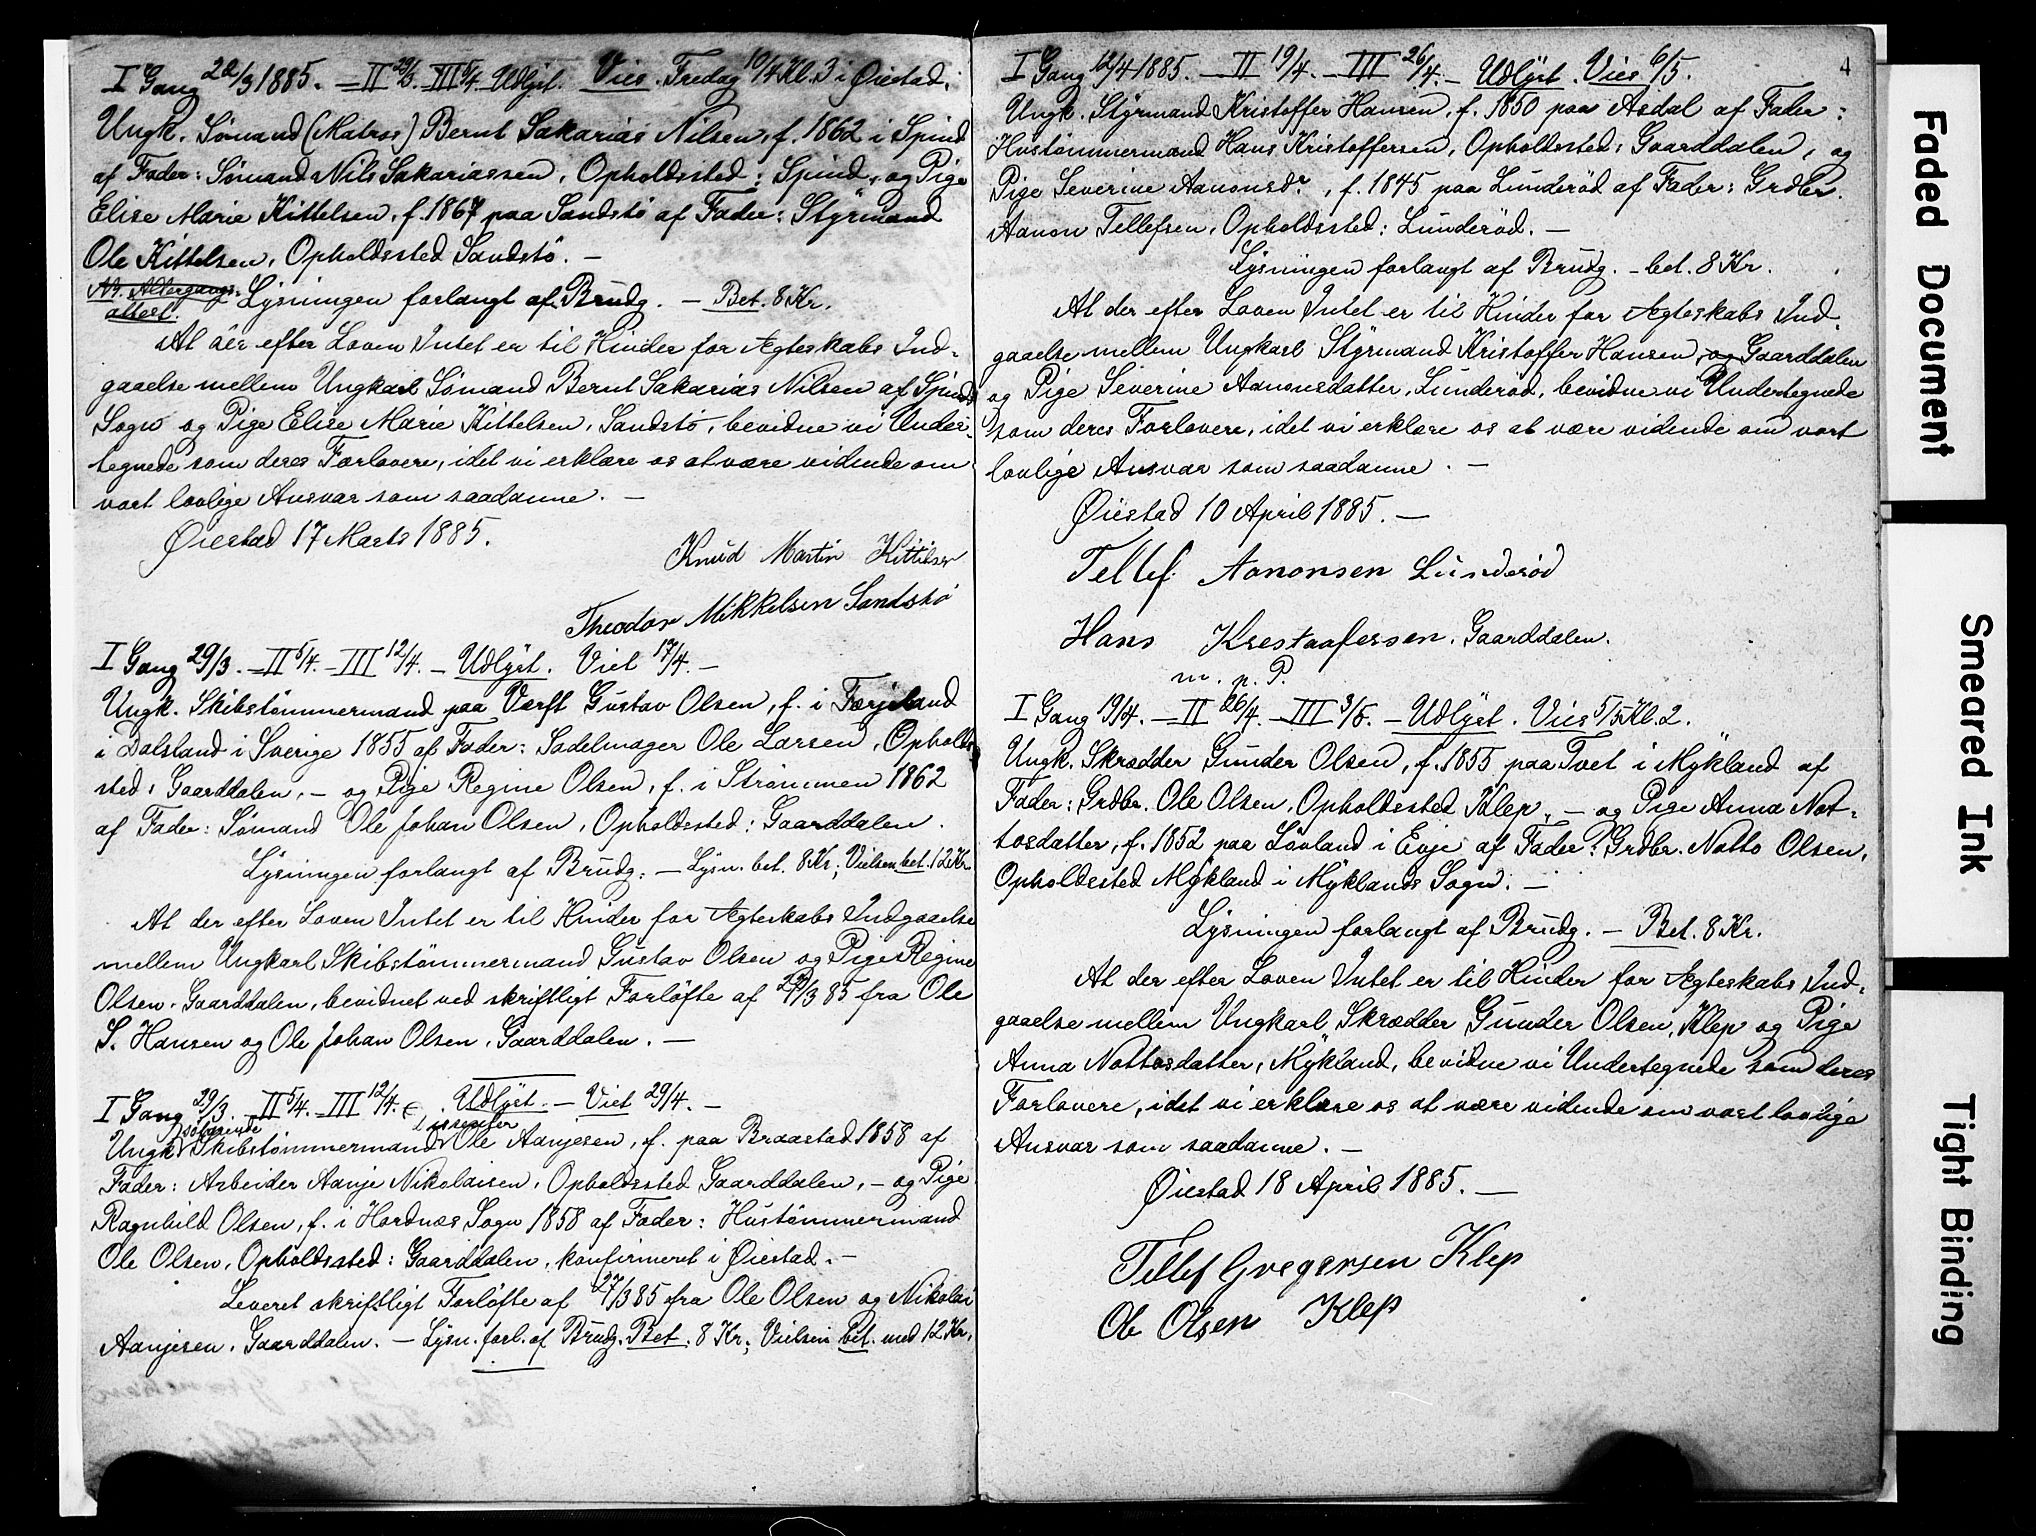 I Gang 22/3 1885. – II 29/3. – III 5/4. Udlyst. Vies Fredag 10/4 Kl. 3 i Øiestad.
Ungk. Sømand (Matros) Bernt Sakarias Nilsen, f. 1862 i Spind
af Fader: Sømand Nils Sakariassen, Opholdssted: Spind, og Pige
Elise Marie Kittelsen, f. 1867 paa Sandstø af Fader: Styrmand
Ole Kittelsen, Opholdssted Sandstø. –
Nb. Altergangs-
attest.
Lysningen forlangt af Brudg. – Bet. 8 Kr.
At der efter Loven Intet er til Hinder for Ægteskabs Ind-
gaaelse mellem Ungkarl Sømand Bernt Sakarias Nilsen af Spinds
Sogn og Pige Elise Marie Kittelsen, Sandstø, bevidne vi Under-
tegnede som deres Forlovere, idet vi erklære os at være vidende om
vort lovlige Ansvar som saadanne. –
Øiestad 17 Marts 1885.
Knud Martin Kittilsen
Theodor Mikkelsen Sandstø
I Gang 29/3. – II 5/4. – III 12/4. – Udlyst. Viet 17/4. –
Ungk. Skibstømmermand paa Værft Gustav Olsen, f. i Færjeland
i Dalsland i Sverige 1855 af Fader: Sadelmager Ole Larsen, Opholds-
sted: Gaarddalen, – og Pige Regine Olsen, f. i Strømmen 1862
af Fader: Sømand Ole Johan Olsen, Opholdssted: Gaarddalen.
Lysningen forlangt af Brudg. – Lysn. bet. 8 Kr.; Vielsen bet. 12 Kr.
At der efter Loven Intet er til Hinder for Ægteskabs Indgaaelse
mellem Ungkarl Skibstømmermand Gustav Olsen og Pige Regine
Olsen, Gaarddalen, bevidnet ved skriftligt Forløfte af /3 85 fra Ole
S. Hansen og Ole Johan Olsen, Gaarddalen. –
I Gang 29/3. II 5/4. – III 12/4. Udlyst. – Viet 29/4. –
søfarende Dissenter
Ungk. Skibstømmermand Ole Aanjesen, f. paa Braastad 1858 af
Fader: Arbeider Aanje Nikolaisen, Opholdssted Gaarddalen, – og Pige
Ragnhild Olsen, f. i Hordnæs Sogn 1858 af Fader: Hustømmermand
Ole Olsen, Opholdssted: Gaarddalen, konfirmeret i Øiestad. –
Leveret skriftligt Forløfte af 27/3 85 fra Ole Olsen og Nikolai
Aanjesen, Gaarddalen. – Lysn. forl. af Brudg. Bet. 8 Kr.; Vielsen bet. med 12 Kr.
4
I Gang 12/4 1885. – II 19/4. – III 26/4. – Udlyst. Vies 6/5.
Ungk. Styrmand Kristoffer Hansen, f. 1850 paa Asdal af Fader:
Hustømmermand Hans Kristoffersen, Opholdssted: Gaarddalen, og
Pige Severine Aanonsdr., f. 1845 paa Lunderød af Fader: Grdbr.
Aanon Tellefsen, Opholdssted: Lunderød. –
Lysningen forlangt af Brudg. – bet. 8 Kr.
At der efter Loven Intet er til Hinder for Ægteskabs Ind-
gaaelse mellem Ungkarl Styrmand Kristoffer Hansen, og Gaarddalen
og Pige Severine Aanonsdatter, Lunderød, bevidne vi Undertegnede
som deres Forlovere, idet vi erklære os at være vidende om vort
lovlige Ansvar som saadanne. –
Øiestad 10 April 1885. –
Tellef Aanonsen Lunderød
Hans Krestaafersen, Gaarddalen.
m. p. P.
I Gang 19/4. – II 26/4. – III 3/5. – Udlyst. Vies 5/5 Kl. 2.
Ungk. Skrædder Gunder Olsen, f. 1855 paa Tvet i Mykland af
Fader: Grdbr. Ole Olsen, Opholdssted Klep, – og Pige Anna Not-
tosdatter, f. 1852 paa Løvland i Evje af Fader: Grdbr. Notto Olsen,
Opholdssted Mykland i Myklands Sogn. –
Lysningen forlangt af Brudg. – Bet. 8 Kr.
At der efter Loven Intet er til Hinder for Ægteskabs Ind-
gaaelse mellem Ungkarl Skrædder Gunder Olsen, Klep og Pige
Anna Nottosdatter, Mykland, bevidne vi Undertegnede som deres
Forlovere, idet vi erklære os at være vidende om vort lovlige
Ansvar som saadanne. –
Øiestad 18 April 1885. –
Tellef Gregersen Klep
Ole Olsen Klep
Faded Document
Smeared Ink
Tight Binding